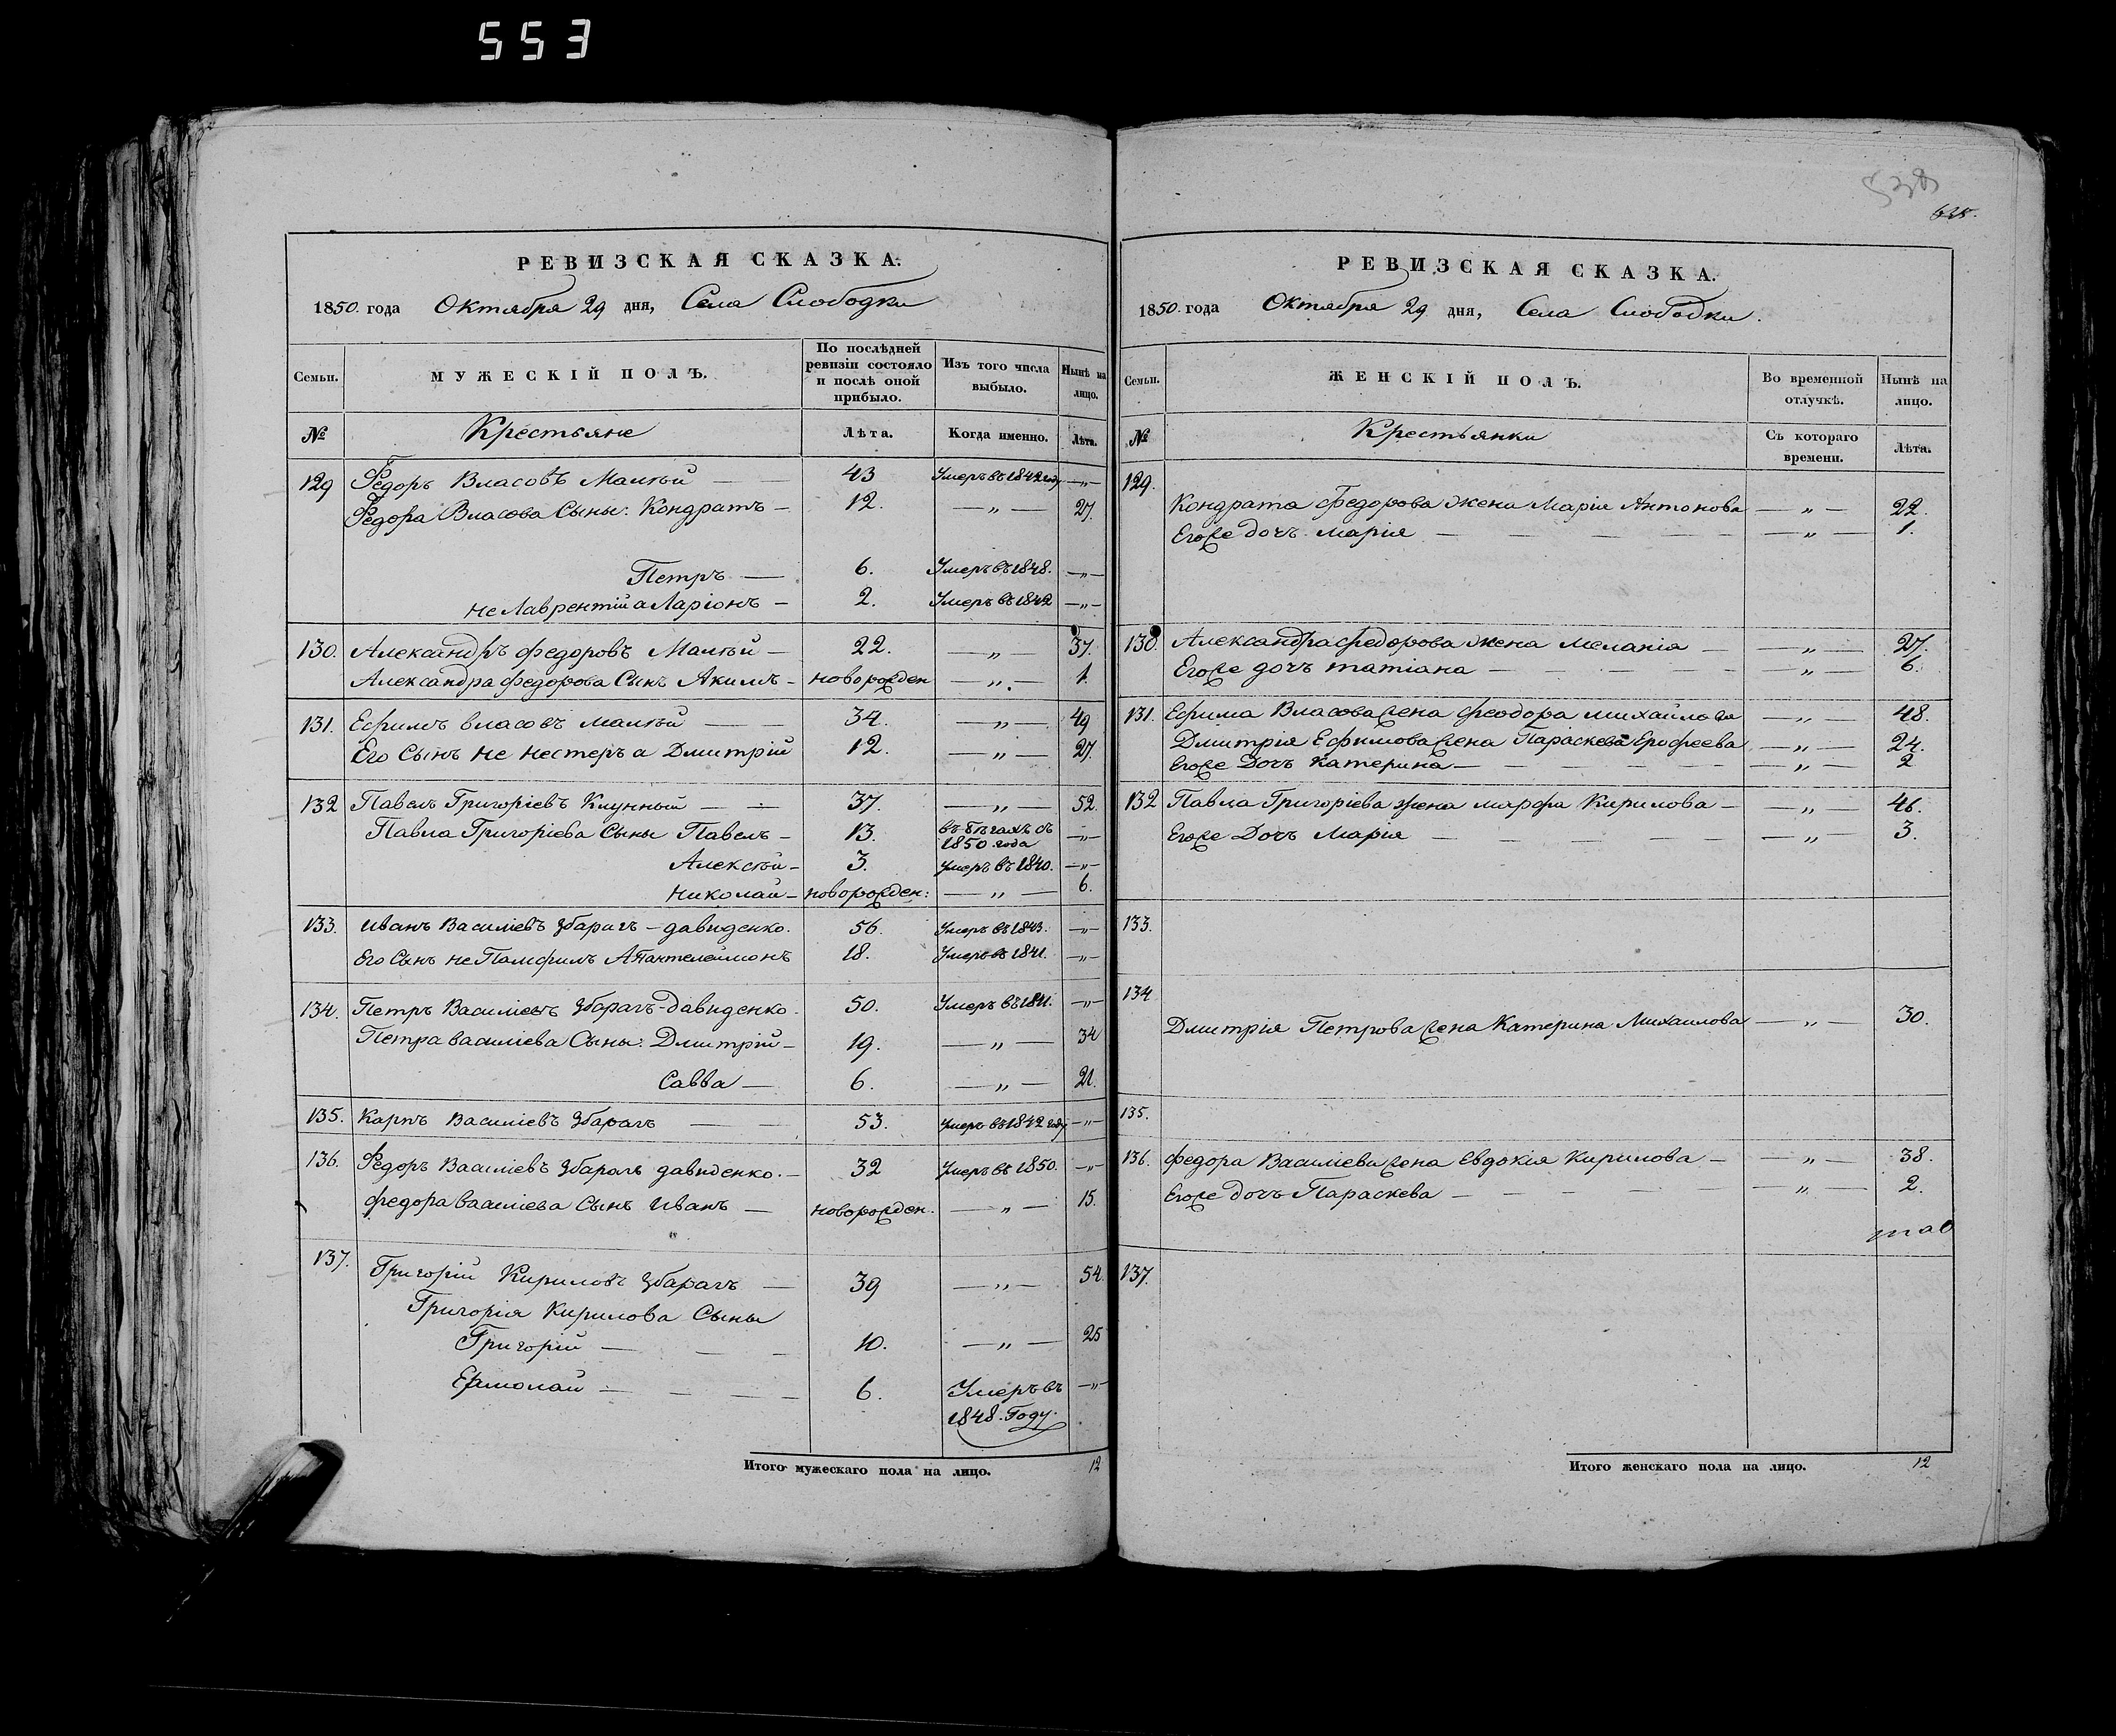 553
РЕВИЗСКАЯ СКАЗКА.
1850. года Октября 29 дня, Села Слободки
Семьи.
МУЖЕСКІЙ ПОЛЪ.
По послѣдней ревизіи состояло и послѣ оной прибыло.
Изъ того числа выбыло.
Нынѣ на лицо.
№
Крестьяне
Лѣта.
Когда именно.
Лѣта.
129 Федоръ Власовъ Малъй — 43 Умеръ въ 1842 году —"—
Федора Власова Сыны: Кондратъ — 12. —"— 27.
Петръ — 6. Умеръ въ 1848. —"—
не Лаврентій а Ларіонъ — 2. Умеръ въ 1842 —"—
130. Александръ Федоровъ Малъй — 22. —"— 37.
Александра Федорова Сынъ Акимъ — новорожден —"— 1.
131. Ефимъ Власовъ Малъй — 34. —"— 49
Его Сынъ не Нестеръ а Дмитрій 12. —"— 27.
132 Павелъ Григоріевъ Клунный — 37. —"— 52.
Павла Григоріева Сыны Павелъ — 13. въ бѣгахъ съ 1850 года —"—
Алексѣй — 3. Умеръ въ 1840. —"—
Николай — новорожден: —"— 6.
133. Иванъ Василіевъ Збарагъ — Давиденко. 56. Умеръ въ 1843. —"—
Его Сынъ не Памфилъ А Пантелеймонъ 18. Умеръ въ 1841. —"—
134. Петръ Василіевъ Збарагъ-Давиденко. 50. Умеръ въ 1841. —"—
Петра Василіева Сыны: Дмитрій — 19. —"— 34
Савва — 6. —"— 21.
135. Карпъ Василіевъ Збарагъ — 53. Умеръ въ 1842 году —"—
136. Федоръ Василіевъ Збарагъ Давиденко. — 32 Умеръ въ 1850. —"—
Федора Василіева Сынъ Иванъ — новорожден. —"— 15.
137. Григорій Кириловъ Збарагъ — 39 —"— 54.
Григорія Кирилова Сыны
Григорій — 10. —"— 25
Ермолай — 6. Умеръ въ 1848. Году. —"—
Итого мужескаго пола на лицо. 12
РЕВИЗСКАЯ СКАЗКА.
1850. года Октября 29 дня, Села Слободки.
Семьи.
ЖЕНСКІЙ ПОЛЪ.
Во временной отлучкѣ.
Нынѣ на лицо.
№
Крестьянки
Съ котораго времени.
Лѣта.
129.
Кондрата Федорова жена Марія Антонова —"— 22.
Его же дочъ Марія — —"— 1.
130. Александра Федорова жена Меланія — —"— 27.
Его же дочъ Татіана — —"— 6.
131. Ефима Власова жена Феодора Михайлова —"— 48.
Дмитрія Ефимова жена Параскева Ерофеева —"— 24.
Его же Дочъ Катерина — —"— 2
132 Павла Григоріева жена Марфа Кирилова — —"— 46.
Его же Дочъ Марія — —"— 3.
133.
134
Дмитрія Петрова жена Катерина Михаилова —"— 30.
135.
136. Федора Василіева жена Евдокія Кирилова — —"— 38.
Его же дочъ Параскева — —"— 2.
137.
Итого женскаго пола на лицо. 12